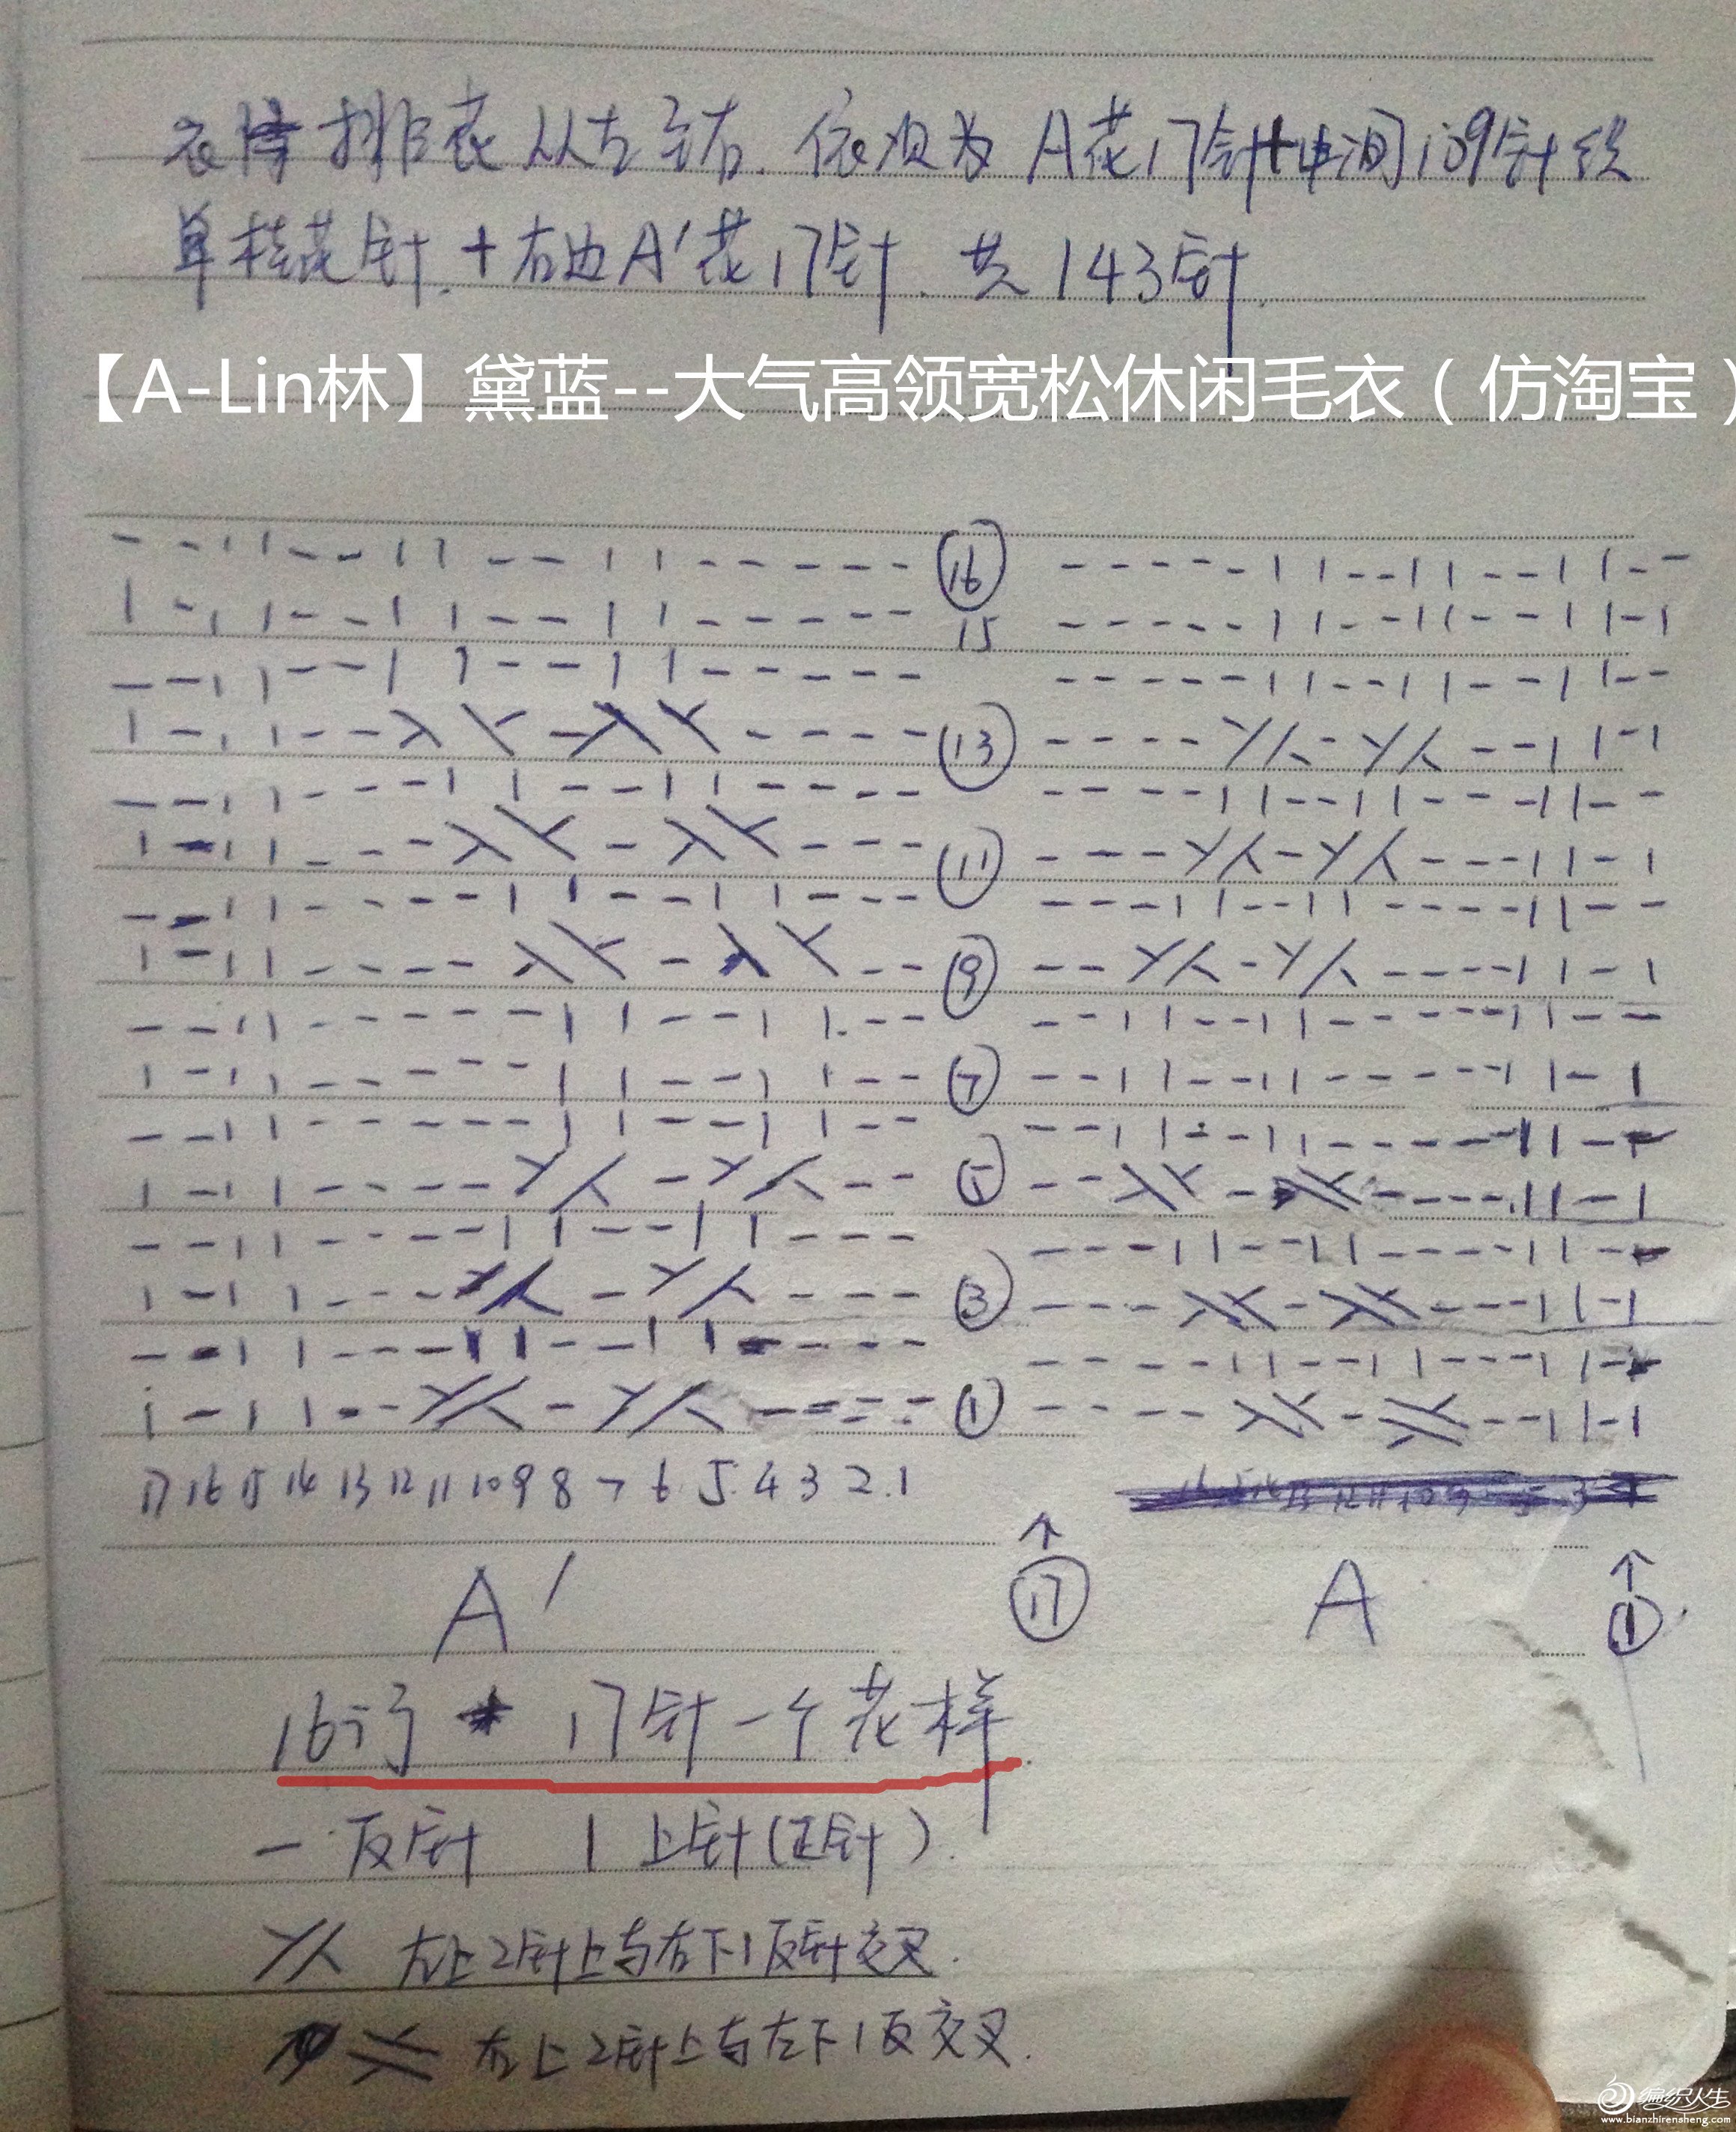 衣片排花从左至右.依次为A花17针+中间109针织
单桂花针.+右边A'花17针.共143针.
【A-Lin林】黛蓝--大气高领宽松休闲毛衣（仿淘宝）
16
15
13
11
9
7
5
3
1
17 16 15 14 13 12 11 10 9 8 7 6 5 4 3 2 1
A' ↑ A ↑
17 1
16行 * 17针一个花样.
一 反针 | 上针(正针).
左上2针上与右下1反针交叉.
右上2针上与左下1反交叉.
编织人生
www.bianzhirensheng.com